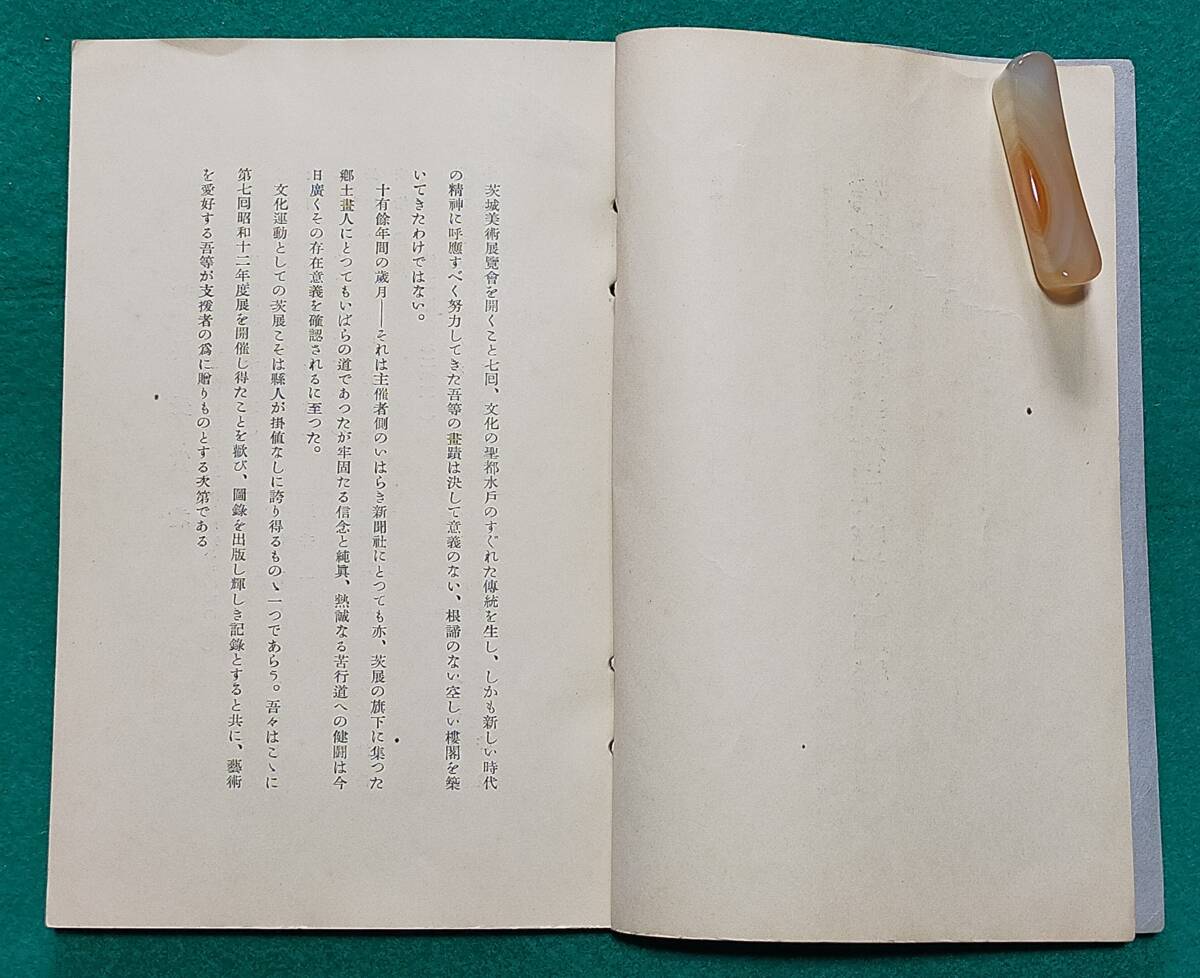 茨城美術展覽會を開くこと七回、文化の聖都水戸のすぐれた傳統を生し、しかも新しい時代
の精神に呼應すべく努力してきた吾等の畫蹟は決して意義のない、根諦のない空しい樓閣を築
いてきたわけではない。
十有餘年間の歳月――それは主催者側のいはらき新聞社にとつても亦、茨展の旗下に集つた
鄕土畫人にとつてもいばらの道であつたが牢固たる信念と純眞、熱誠なる苦行道への健鬪は今
日廣くその存在意義を確認されるに至つた。
文化運動としての茨展こそは縣人が掛値なしに誇り得るものゝ一つであらう。吾々はこゝに
第七回昭和十二年度展を開催し得たことを歡び、圖錄を出版し輝しき記錄とすると共に、藝術
を愛好する吾等が支援者の爲に贈りものとする次第である